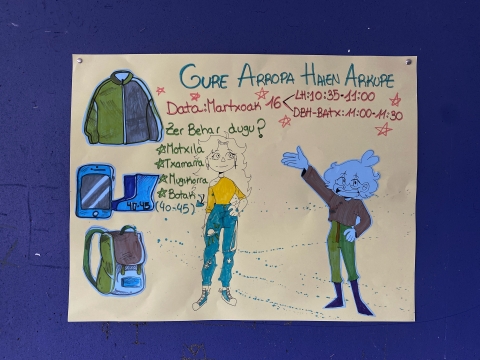 GURE ARROPA HAIEN ARKUPE
Data: Martxoak 16
LH: 10:35-11:00
DBH-BATX: 11:00-11:30
Zer Behar dugu?
Motxila
Txamarra
Mugikorra
Botak
(40-45)
40-45